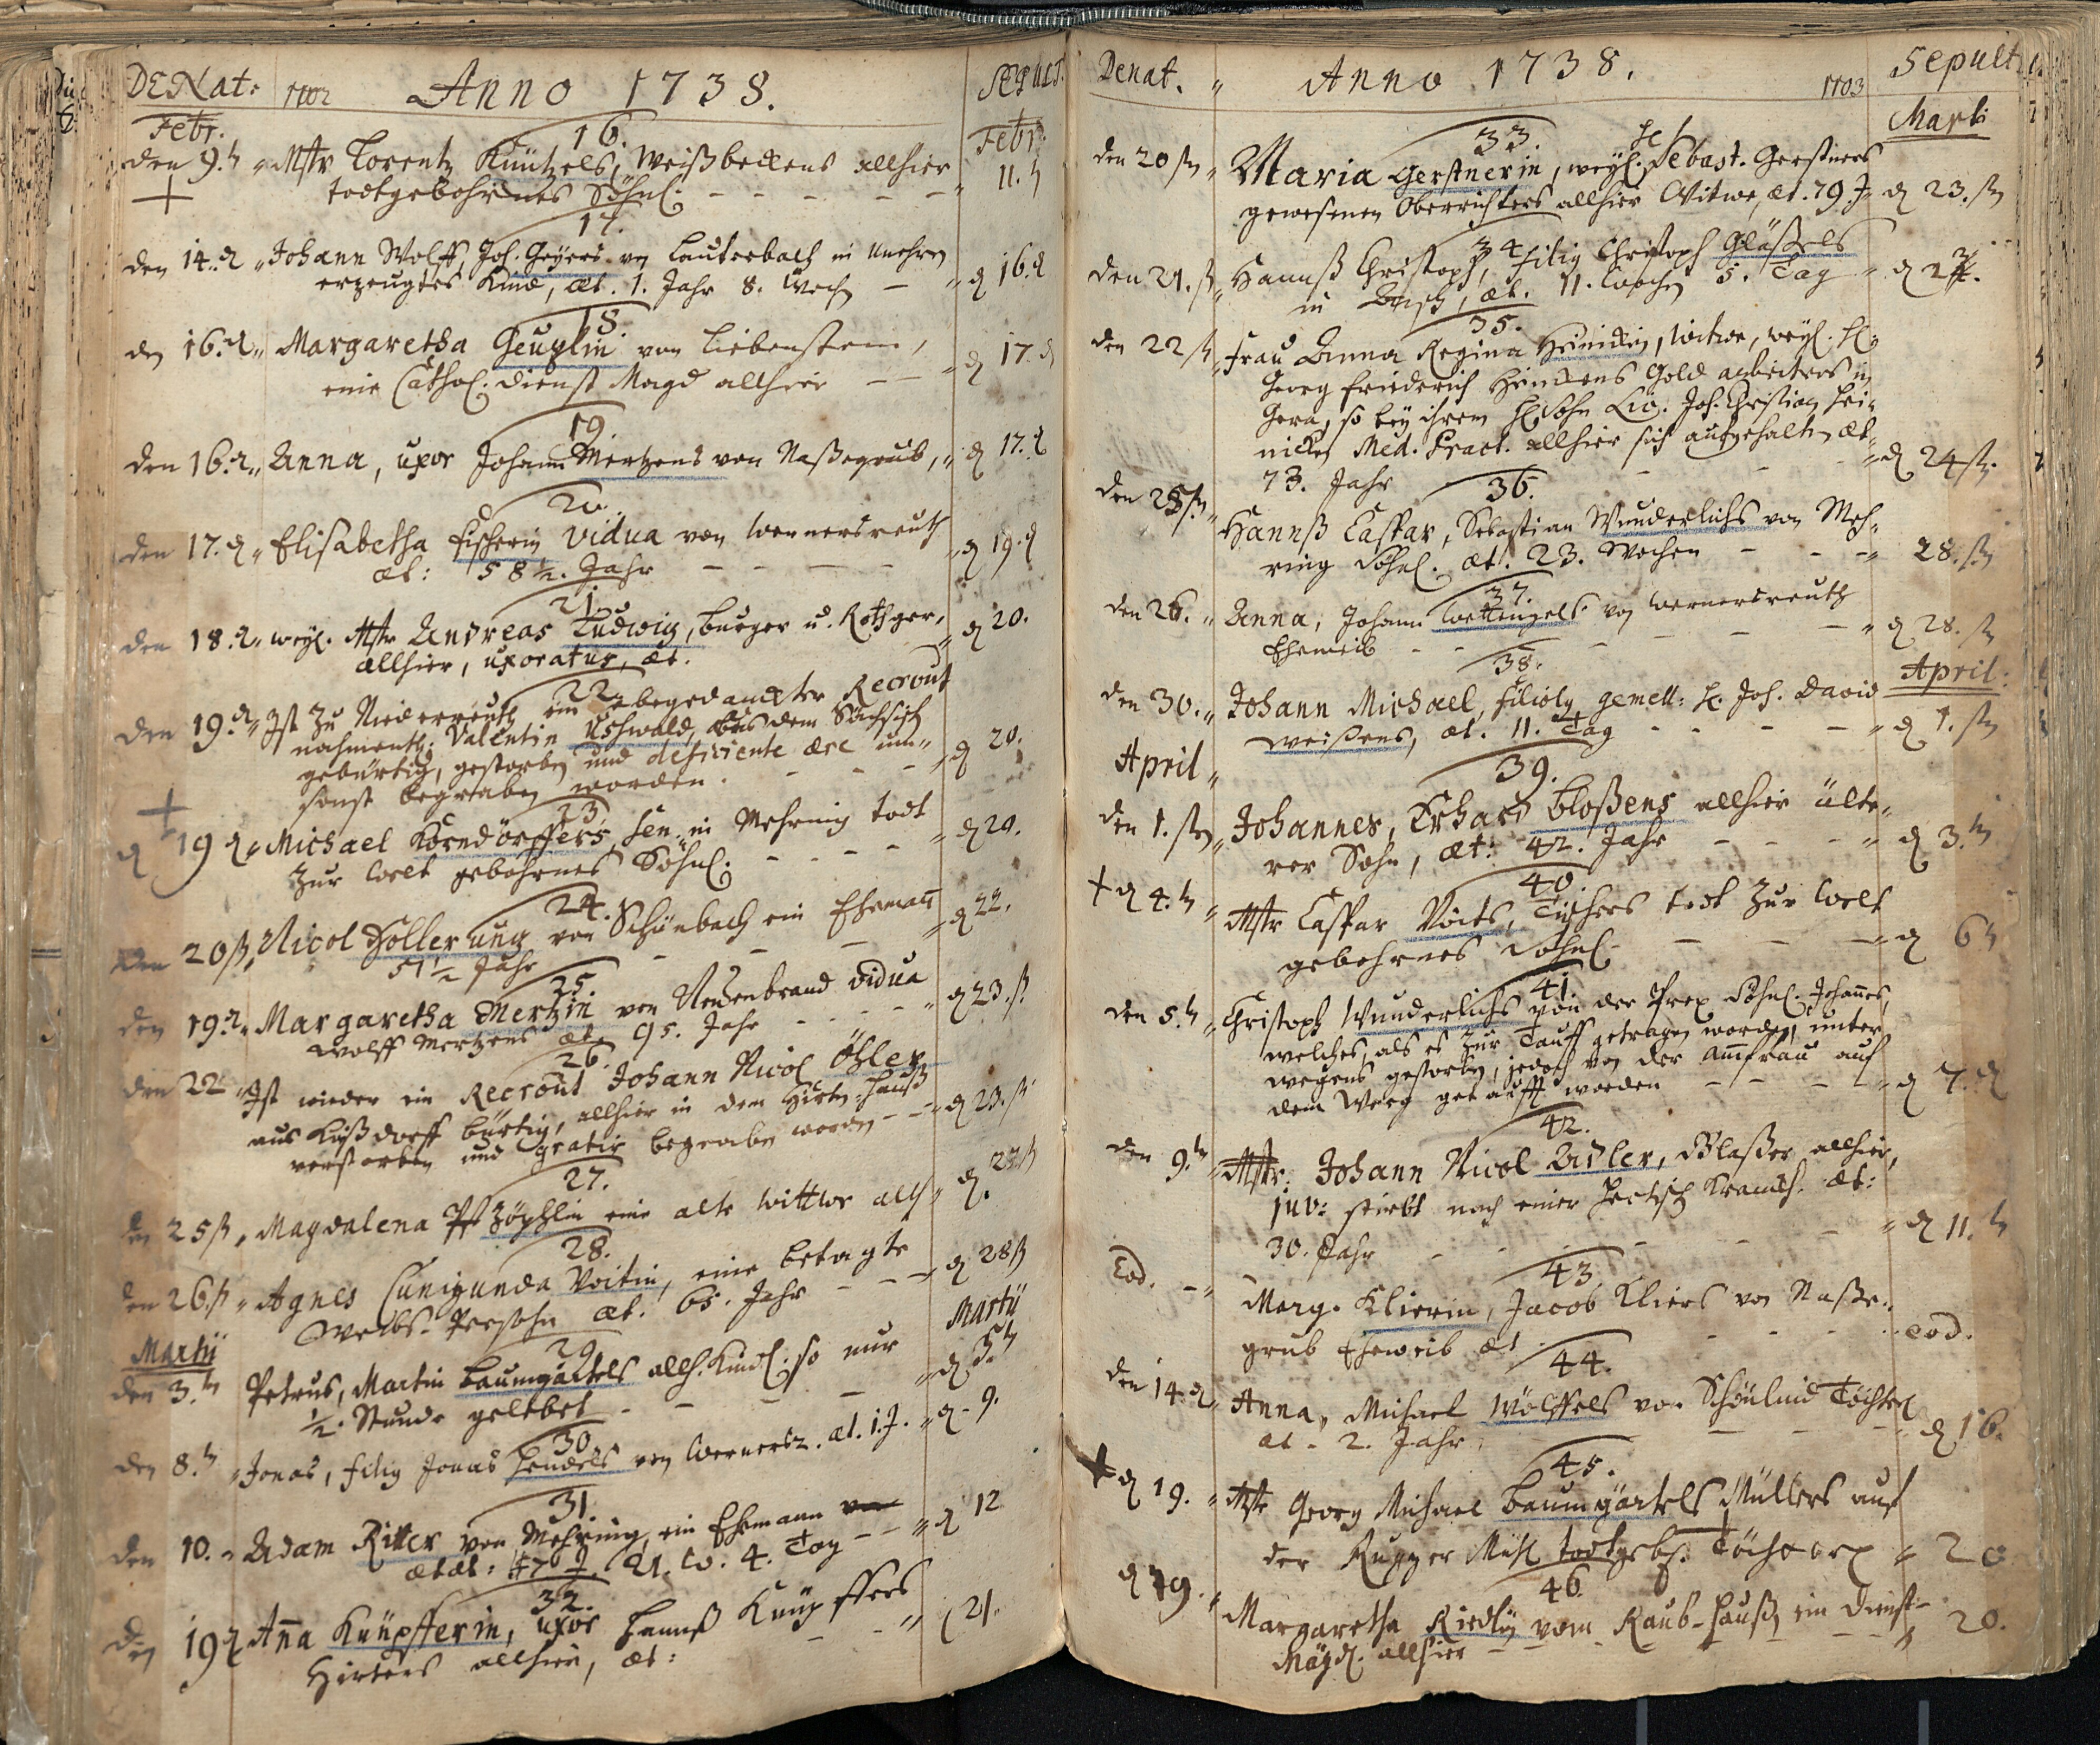 DENat: 1702 Anno 1738. Sepult.
Febr. Febr.
16.
den 9.t Mstr Lorentz Küntzels, Weißbeckens allhier 11.t
todtgebohrnes Söhnl.
17.
den 14.d Johann Wolff, Joh. Geyers von Lauterbach in Unehren
erzeugtes Kind, æt. 1. Jahr 8. Woch d 16.d
18.
den 16.d Margaretha Geuplin von Liebenstein,
eine Cathol. Dienst Magd allhier d 17.d
19.
den 16.d Anna, uxor Johann Mertzens von Naßegrub, d 17.d
20.
den 17.d Elisabetha Fischerin vidua von Wernersreuth
æt: 58 1/2. Jahr d 19.d
21.
den 18.d weyl. Mstr Andreas Ludwig, burger u. Rothger.
allhier, uxoratus, æt. d 20.
22.
den 19.d Ist zu Niederreuth ein abgedanckter Recrout
nahmentl. Valentin Eshwald, aus dem Sächsisch
gebürtig, gestorben und deficiente ære um-
sonst begraben worden. d 20.
23.
d 19 d Michael Korndörffers, sen. in Mehring todt
zur Welt gebohrnes Söhnl. d 20.
24.
den 20ß Nicol Hollerung von Schönbach ein Ehemañ
51 1/2 Jahr d 22.
25.
den 19.d Margaretha Mertzin von Neuenbrand vidua
Wolff Mertzens æt. 95. Jahr d 23.ß
26.
den 22 Ist wieder ein Recrout Johann Nicol Öhler
aus bürtig, allhier in dem Hirten-Hauß
verstorben und gratis begraben worden d 23.ß
27.
den 25ß Magdalena Zöphlin eine alte Wittwe allh d. 27ß
28.
den 26.ß Agnes Cunigunda Voitin, eine betagte
Weibs-Persohn æt. 65. Jahr d 28ß
Martii Martij
29.
den 3.t Petrus, Martin Baumgärtels allh. Kindl. so nur
1/2. Stunde gelebet d 5.t
30.
den 8.t Jonas, filius Jonas Hendels von Wernersr. æt. 1.J. d. 9.
31.
den 10. Adam Ritter von Mehring, ein Ehemann
ætat: 47 J. 21. W. 4. Tag d 12
32.
den 19 d Aña Knüpfferin, uxor Hannß Knüpffers
Hirtens allhier, æt: 21.
Denat. Anno 1738. 1703 Sepult
Marti
33.
den 20 stn Maria Gerstnerin, weyl. H. Sebast. Gerstners
gewesenen Oberrichters allhier Witwe, æt. 79. J. d 23.stn
34
den 21.ß Hannß Christoph, filius Christoph Gläßels
in Asch, æt. 11. Wochen 5. Tag d
35.
den 22 ß Frau Anna Regina Heinickin, Witwe, weyl. H.
Georg Friederich Heinickens Gold arbeiters in
Gera, so bey ihrem H. Sohn Lic. Joh. Christian Hei-
nicken Med. Pract. allhier sich aufgehalten æt.
73. Jahr d 24stn.
36.
den 25stn Hannß Caspar, Sebastian Wunderlichs von Meh-
ring Söhnl. æt. 23. Wochen 28.stn
37.
den 26. Anna, Johann Wettengels von Wernersreuth
Eheweib d 28.stn
April:
38.
den 30. Johann Michael, filiolus gemell: H. Joh. David
Weißens, æt. 11. Tag d 1.stn
April
39.
den 1.stn Johannes, Erhard Bloßens allhier älte-
rer Sohn, æt: 42. Jahr d 3.tn
40.
d 4.t Mstr Caspar Voits, Tischers todt zur Welt
gebohrnes Söhnl. d 6t
41.
den 5.t Christoph Wunderlichs von der Prex Söhnl. Johañes,
welches, als es zur Tauff getragen worden, unter
wegens gestorben, jedoch von der Amfrau auf
dem Weeg getaufft worden d 7.d
42.
den 9.tn Mstr. Johann Nicol Adler, Glaßer allhier,
juv: stirbt nach einer Hectisch Kranckh. æt:
30. Jahr d 11.tn
43.
Eod. Marg. Klierin, Jacob Kliers von Naße-
grub Eheweib æt eod.
44.
den 14.d Anna, Michael Wölffels von Schönlind Töchterl
æt. 2. Jahr d 16.
45.
d 19. Mstr Georg Michael Baumgärtels Müllers auf
der Mühl todtgeb. Töchterl 20
46.
d 19. Margaretha Riedlin vom Raub-Hauß, ein Dienst-
Mägdl. allhier 20.